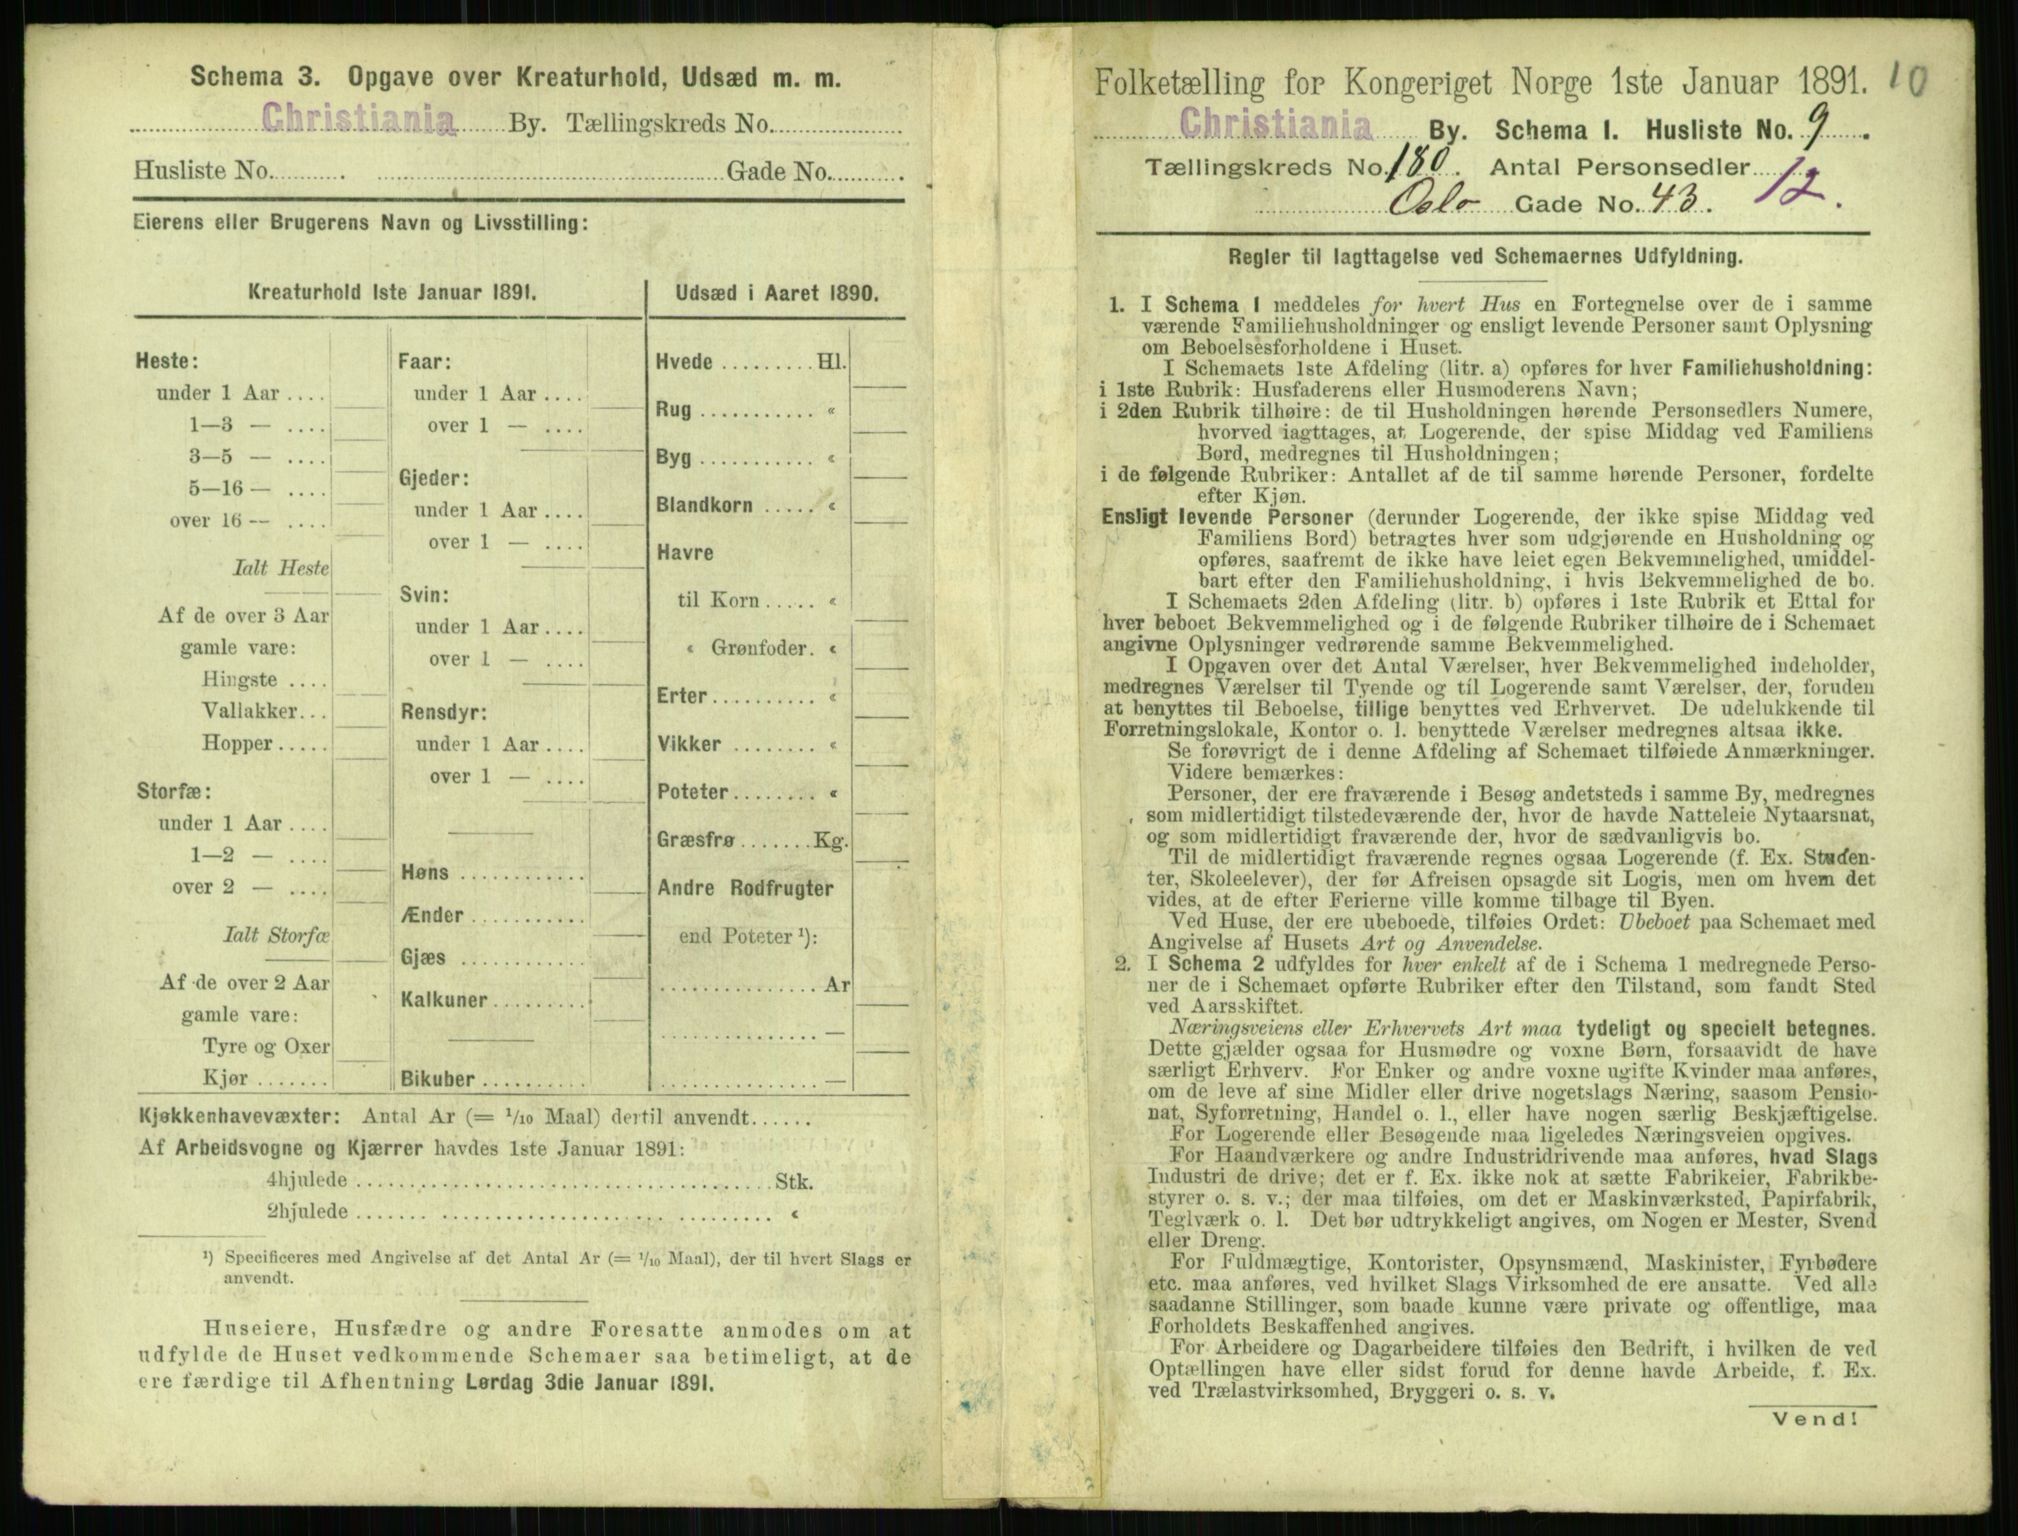 Schema 3. Opgave over Kreaturhold, Udsæd m. m.
Christiania By. Tællingskreds No.
Husliste No. Gade No.
Eierens eller Brugerens Navn og Livsstilling:
Kreaturhold 1ste Januar 1891.
Heste:
under 1 Aar ....
1—3 — ....
3—5 — ....
5—16 — ....
over 16 — ....
Ialt Heste
Af de over 3 Aar
gamle vare:
Hingste ....
Vallakker...
Hopper.....
Storfæ:
under 1 Aar ....
1—2 — ....
over 2 — ....
Ialt Storfæ
Af de over 2 Aar
gamle vare:
Tyre og Oxer
Kjør .......
Faar:
under 1 Aar ....
over 1 — ....
Gjeder:
under 1 Aar ....
over 1 — ....
Svin:
under 1 Aar ....
over 1 — ....
Rensdyr:
under 1 Aar ....
over 1 — ....
Høns ............
Ænder ...........
Gjæs ............
Kalkuner.........
Bikuber ..........
Udsæd i Aaret 1890.
Hvede ......... Hl.
Rug ........... «
Byg ........... «
Blandkorn ..... «
Havre
til Korn ..... «
« Grønfoder. «
Erter.......... «
Vikker ........ «
Poteter........ «
Græsfrø ....... Kg.
Andre Rodfrugter
end Poteter ¹):
............... Ar
............... —
............... —
Kjøkkenhavevæxter: Antal Ar (= 1/10 Maal) dertil anvendt......
Af Arbeidsvogne og Kjærrer havdes 1ste Januar 1891:
4hjulede ....................................... Stk.
2hjulede ....................................... «
¹) Specificeres med Angivelse af det Antal Ar (= 1/10 Maal), der til hvert Slags er
anvendt.
Huseiere, Husfædre og andre Foresatte anmodes om at
udfylde de Huset vedkommende Schemaer saa betimeligt, at de
ere færdige til Afhentning Lørdag 3die Januar 1891.
Folketælling for Kongeriget Norge 1ste Januar 1891. 10
Christiania By. Schema 1. Husliste No. 9.
Tællingskreds No. 180. Antal Personsedler 12.
Oslo Gade No. 43.
Regler til Iagttagelse ved Schemaernes Udfyldning.
1. I Schema 1 meddeles for hvert Hus en Fortegnelse over de i samme
værende Familiehusholdninger og ensligt levende Personer samt Oplysning
om Beboelsesforholdene i Huset.
I Schemaets 1ste Afdeling (litr. a) opføres for hver Familiehusholdning:
i 1ste Rubrik: Husfaderens eller Husmoderens Navn;
i 2den Rubrik tilhøire: de til Husholdningen hørende Personsedlers Numere,
hvorved iagttages, at Logerende, der spise Middag ved Familiens
Bord, medregnes til Husholdningen;
i de følgende Rubriker: Antallet af de til samme hørende Personer, fordelte
efter Kjøn.
Ensligt levende Personer (derunder Logerende, der ikke spise Middag ved
Familiens Bord) betragtes hver som udgjørende en Husholdning og
opføres, saafremt de ikke have leiet egen Bekvemmelighed, umiddel-
bart efter den Familiehusholdning, i hvis Bekvemmelighed de bo.
I Schemaets 2den Afdeling (litr. b) opføres i 1ste Rubrik et Ettal for
hver beboet Bekvemmelighed og i de følgende Rubriker tilhøire de i Schemaet
angivne Oplysninger vedrørende samme Bekvemmelighed.
I Opgaven over det Antal Værelser, hver Bekvemmelighed indeholder,
medregnes Værelser til Tyende og til Logerende samt Værelser, der, foruden
at benyttes til Beboelse, tillige benyttes ved Erhvervet. De udelukkende til
Forretningslokale, Kontor o. l. benyttede Værelser medregnes altsaa ikke.
Se forøvrigt de i denne Afdeling af Schemaet tilføiede Anmærkninger.
Videre bemærkes:
Personer, der ere fraværende i Besøg andetsteds i samme By, medregnes
som midlertidigt tilstedeværende der, hvor de havde Natteleie Nytaarsnat,
og som midlertidigt fraværende der, hvor de sædvanligvis bo.
Til de midlertidigt fraværende regnes ogsaa Logerende (f. Ex. Studen-
ter, Skoleelever), der før Afreisen opsagde sit Logis, men om hvem det
vides, at de efter Ferierne ville komme tilbage til Byen.
Ved Huse, der ere ubeboede, tilføies Ordet: Ubeboet paa Schemaet med
Angivelse af Husets Art og Anvendelse.
2. I Schema 2 udfyldes for hver enkelt af de i Schema 1 medregnede Perso-
ner de i Schemaet opførte Rubriker efter den Tilstand, som fandt Sted
ved Aarsskiftet.
Næringsveiens eller Erhvervets Art maa tydeligt og specielt betegnes.
Dette gjælder ogsaa for Husmødre og voxne Børn, forsaavidt de have
særligt Erhverv. For Enker og andre voxne ugifte Kvinder maa anføres,
om de leve af sine Midler eller drive nogetslags Næring, saasom Pensio-
nat, Syforretning, Handel o. l., eller have nogen særlig Beskjæftigelse.
For Logerende eller Besøgende maa ligeledes Næringsveien opgives.
For Haandværkere og andre Industridrivende maa anføres, hvad Slags
Industri de drive; det er f. Ex. ikke nok at sætte Fabrikeier, Fabrikbe-
styrer o. s. v.; der maa tilføies, om det er Maskinværksted, Papirfabrik,
Teglværk o. l. Det bør udtrykkeligt angives, om Nogen er Mester, Svend
eller Dreng.
For Fuldmægtige, Kontorister, Opsynsmænd, Maskinister, Fyrbødere
etc. maa anføres, ved hvilket Slags Virksomhed de ere ansatte. Ved alle
saadanne Stillinger, som baade kunne være private og offentlige, maa
Forholdets Beskaffenhed angives.
For Arbeidere og Dagarbeidere tilføies den Bedrift, i hvilken de ved
Optællingen have eller sidst forud for denne havde Arbeide, f. Ex.
ved Trælastvirksomhed, Bryggeri o. s. v.
Vend!